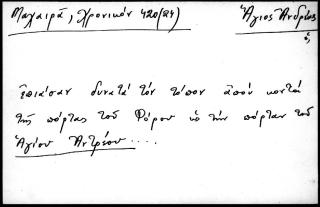 Μαχαιρᾶ, Χρονικόν 420(24)
Ἅγιος Ἀνδρέας
ὁ,
ἐπιάσαν δυνατά τόν τόπον ἀπού κοντά
τῆς πόρτας τοῦ Φόρου ὡς τήν πόρταν τοῦ
Ἁγίου Ἀντρέου ....